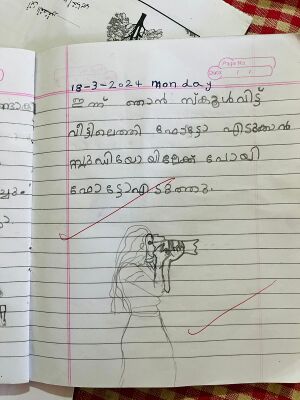 Page No
Date / /
18-3-2024 monday
ഇന്ന് ഞാൻ സ്കൂൾവിട്ട്
വീട്ടിലെത്തി ഫോട്ടോ എടുക്കാൻ
സ്റ്റുഡിയോയിലേക്ക് പോയി
ഫോട്ടോഎടുത്തു.